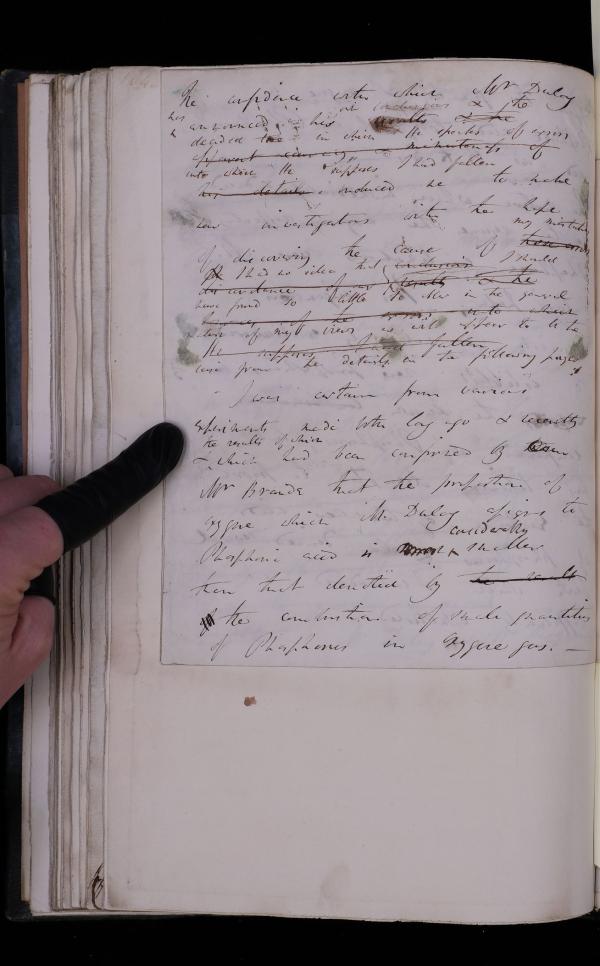 The confidence with which Mr Dulong
has announced his conclusions & the
results & the
decided in which he speaks of errors
apparent minuteness of
into which he supposes I had fallen
his details induced me to make
new investigations with the hope
my mistakes
of discovering the cause of these errors
I had no idea that I should
conclusions
results & the
have found so little to alter in the general
of my views as will appear to be the
he supposes I had fallen
case from the details in the following pages
I was certain from various
experiments made both long ago & recently
the results of which
& which had been confirmed by
Mr Brande that the proportion of
oxygene which Mr Dulong assigns to
considerably
Phosphoric acid is smaller
than that denoted by the results
of the combustion of small quantities
of Phosphorus in oxygene gas. —